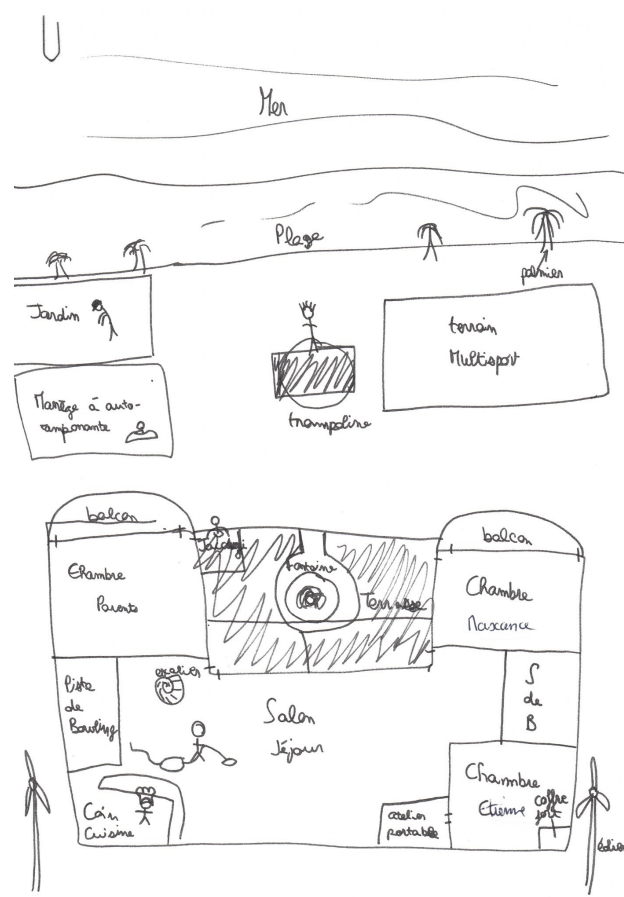 Mer
Plage
palmier
Jardin
terrain
Multisport
Manège à auto-
tamponante
trampoline
balcon
balcon
Jacuzzi
Fontaine
Terrasse
Chambre
Parents
Chambre
Maxance
escalier
Piste
de
Bowling
Salon
Séjour
S
de
B
Coin
Cuisine
Chambre
Etienne
coffre
fort
atelier
portable
éolien